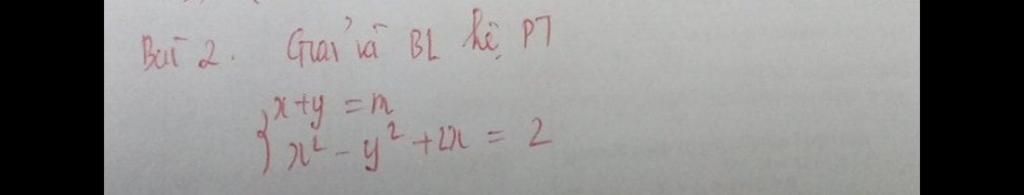 Bài 2. Giải và BL hệ PT
x+y = m
x² - y² + 2x = 2